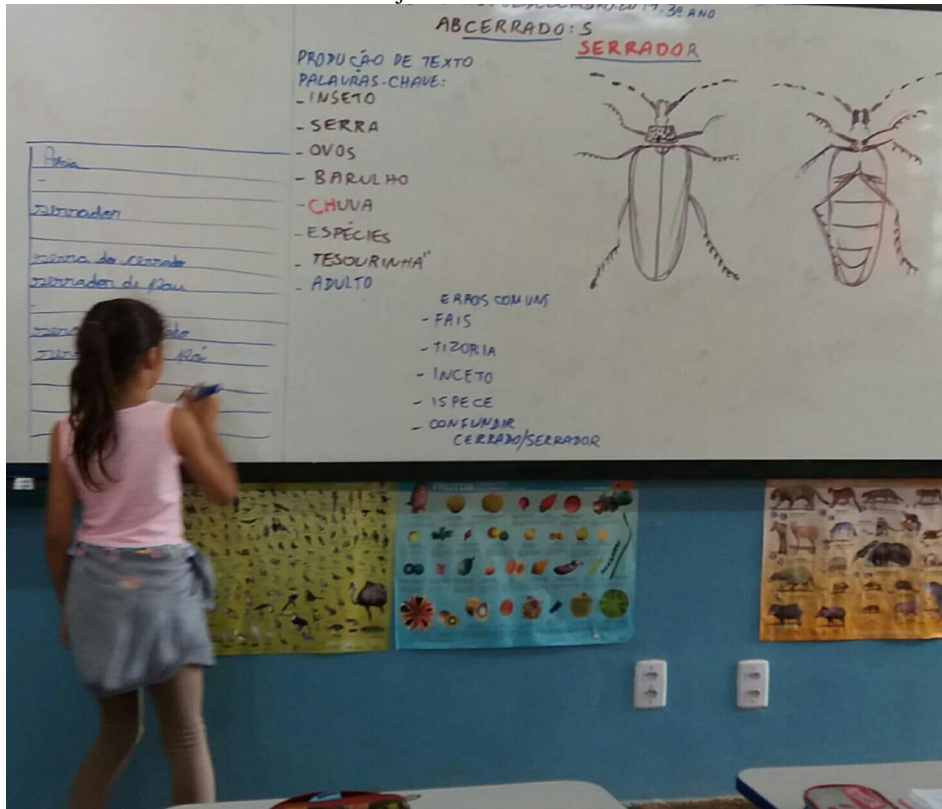 3º ANO
ABCERRADO: S
SERRADOR
PRODUÇÃO DE TEXTO
PALAVRAS-CHAVE:
- INSETO
- SERRA
- OVOS
- BARULHO
- CHUVA
- ESPÉCIES
- TESOURINHA"
- ADULTO
ERROS COMUNS
- FAIS
- TIZORIA
- INCETO
- ISPECE
- CONFUNDIR
CERRADO/SERRADOR
-
serrador
serra do cerrado
serrador de pau
-
FRUTOS